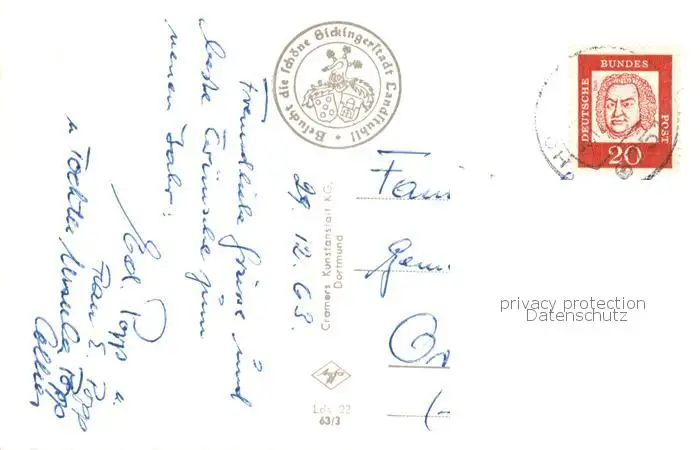 29. 12. 63.
Freundliche Grüsse und
beste Wünsche zum
neuen Jahr!
Ed. Popp u.
Frau E. Popp
u Tochter Ursula Popp
Besucht die schöne Sickingerstadt Landstuhl!
Cramers Kunstanstalt KG,
Dortmund
Agfa
Lds 22
63/3
Fam
DEUTSCHE BUNDES POST
20
privacy protection
Datenschutz